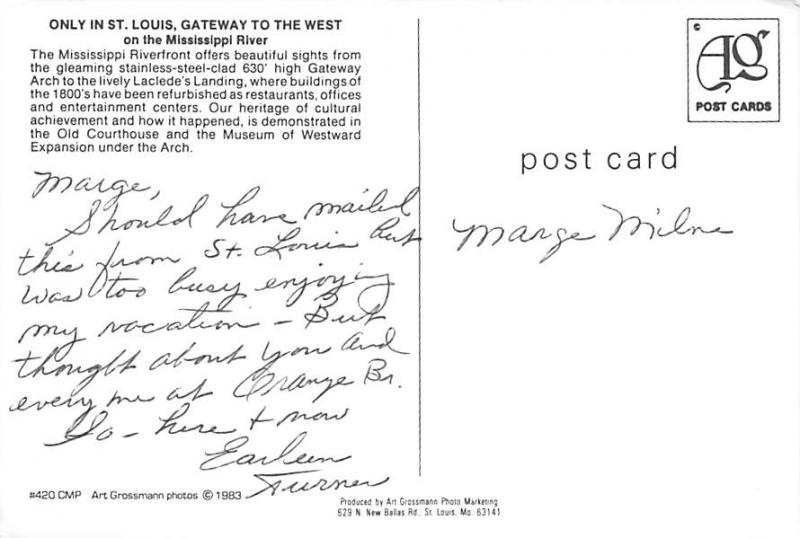 ONLY IN ST. LOUIS, GATEWAY TO THE WEST
on the Mississippi River
The Mississippi Riverfront offers beautiful sights from
the gleaming stainless-steel-clad 630' high Gateway
Arch to the lively Laclede's Landing, where buildings of
the 1800's have been refurbished as restaurants, offices
and entertainment centers. Our heritage of cultural
achievement and how it happened, is demonstrated in
the Old Courthouse and the Museum of Westward
Expansion under the Arch.
Marge,
Should have mailed
this from St. Louis but
was too busy enjoying
my vacation - But
thought about you and
every me at Orange Br.
So - here + now
Earleen
Turner
#420 CMP Art Grossmann photos © 1983
Produced by Art Grossmann Photo Marketing
629 N. New Ballas Rd., St. Louis, Mo. 63141
© AG
POST CARDS
post card
Marge Milne